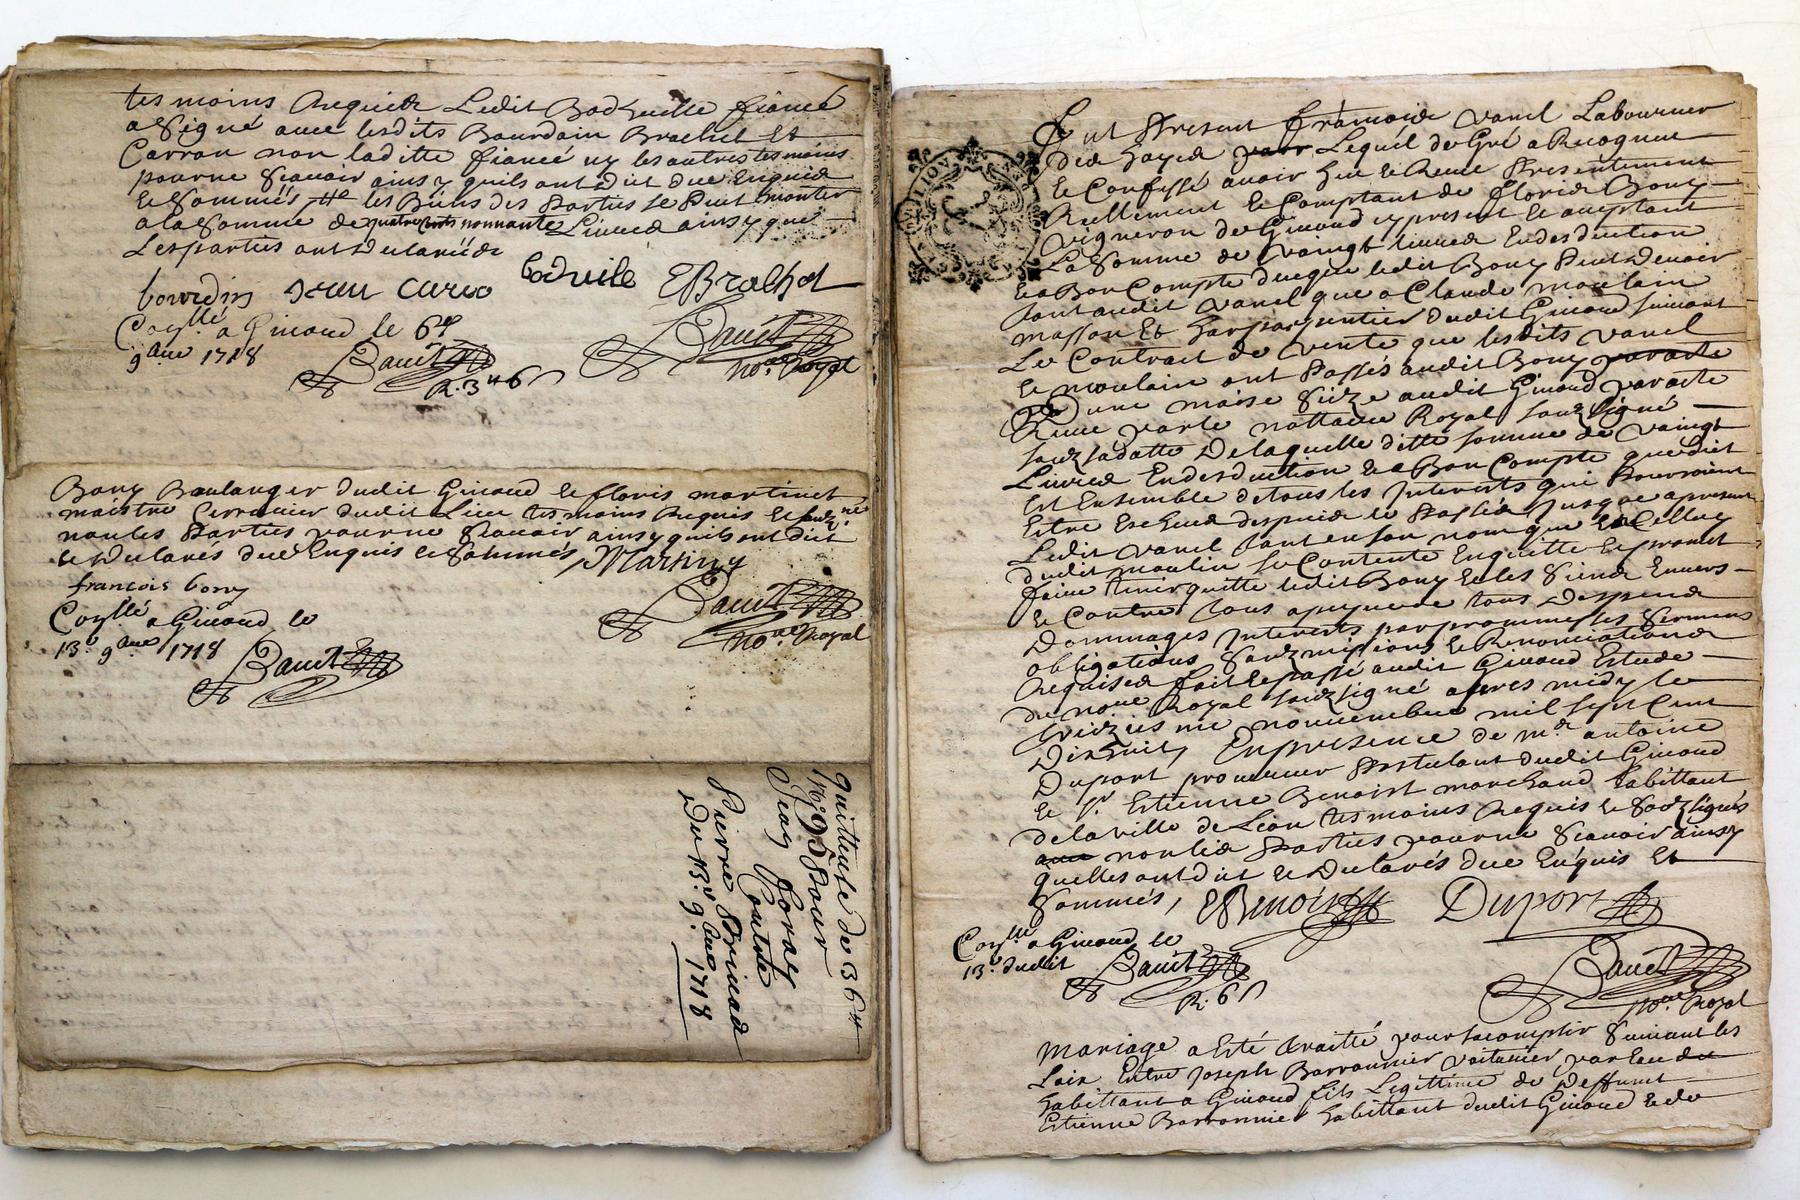 tesmoins Requis Ledit Badhuille fiancé
a Signé avec lesdits Bourdain Brachet Et
Carron non laditte fiancée ny les autres tesmoins
pour ne Scavoir ainsy quils ont Dit due Enquis
et Sommés, les Biens des Parties Se Peut monter
a la Somme de quatre cents nonnante Livres ainsy que
Les parties ont Declaré
bourdin Jean badville EBrachet
Coyllé a Givord le 6e
9bre 1718
R. 3tt 6s
nore Royal
Bony Boulanger dudit Givord et floris martinet
maistre dudit Lieu tesmoins Requis et
non les Parties pour ne Scavoir ainsy quils ont dit
et Declarés due Enquis et Sommés, Martiny
francois bony
Coyllé a Givord le
13e 9bre 1718
nore Royal
Quittance de 36tt
16s 9d Pour
Jean
Contre
Pierre
Du 13e 9bre 1718
fut Present françois vanel Laboureur
des hayes Lequel de Gré a Recogneu
et Confessé avoir heu et Receu Presentement
Reellement et Comptant de floris Bony
vigneron de Givord cy present et aceptant
La Somme de vaingt livres En desduction
et a Bon Compte de ce que ledit Bony Peut Devoir
tant audit vanel que a Claude moulain
masson Et charpentier dudit Givord suivant
Le Contrait de vente que lesdits vanel
et moulain ont Passés audit Bony
D'une maison Size audit Givord par acte
Receu par le nottaire Royal Souzsigné
souz sa datte De laquelle ditte somme de vaingt
Livres En desduction et a Bon Compte que dict
Est Ensemble de tous les Interests qui Pourroient
Estre Escheus despuis le Passé Jusque a present
Ledit vanel tant en son nom que Celluy
dudit moulin se Contente En quitte et promet
faire tenir quitte ledit Bony et les Siens Envers
et Contre tous a peyne de tous Despens
Dommages Interests par promesses Sermens
obligations Souzmissions et Renonciations
Requises fait et passé audit Givord Estude
du nore Royal Souzsigné apres midy le
treiziesme novembre mil sept Cent
Dixhuit, En presence de mr antoine
Duport procureur Postulant dudit Givord
et sr Estienne Benoist marchand habittant
de la ville de Lion tesmoins Requis et Souzsignés
non les Parties pour ne Scavoir ainsy
quelles ont dit et Declarés due Enquis Et
Sommés, EBenoist Duport
Coyllé a Givord le
13e dudit
R. 6s
nore Royal
Mariage a Esté traitté pour Sacomplir Suivant les
Loix Entre Joseph Barronnier voiturier par Eau
habittant a Givord fils Legittime de Deffunt
Estienne Barronnier habittant dudit Givord et de